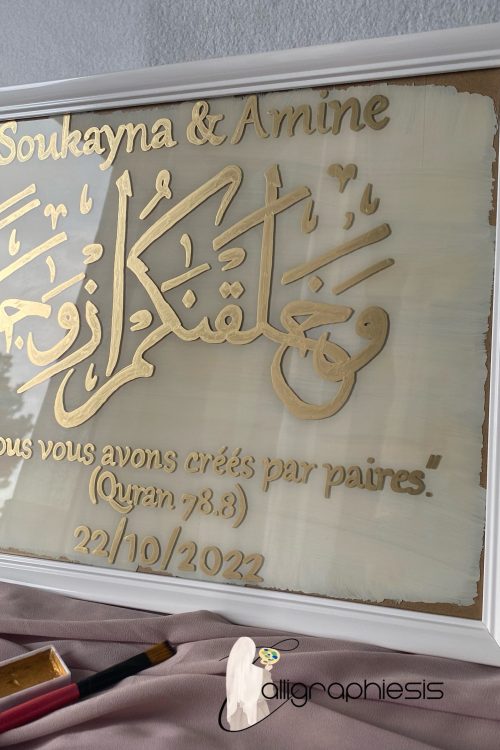 Soukayna & Amine
وَخَلَقْنَٰكُمْ أَزْوَٰجًا
ous vous avons créés par paires."
(Quran 78.8)
22/10/2022
alligraphiesis